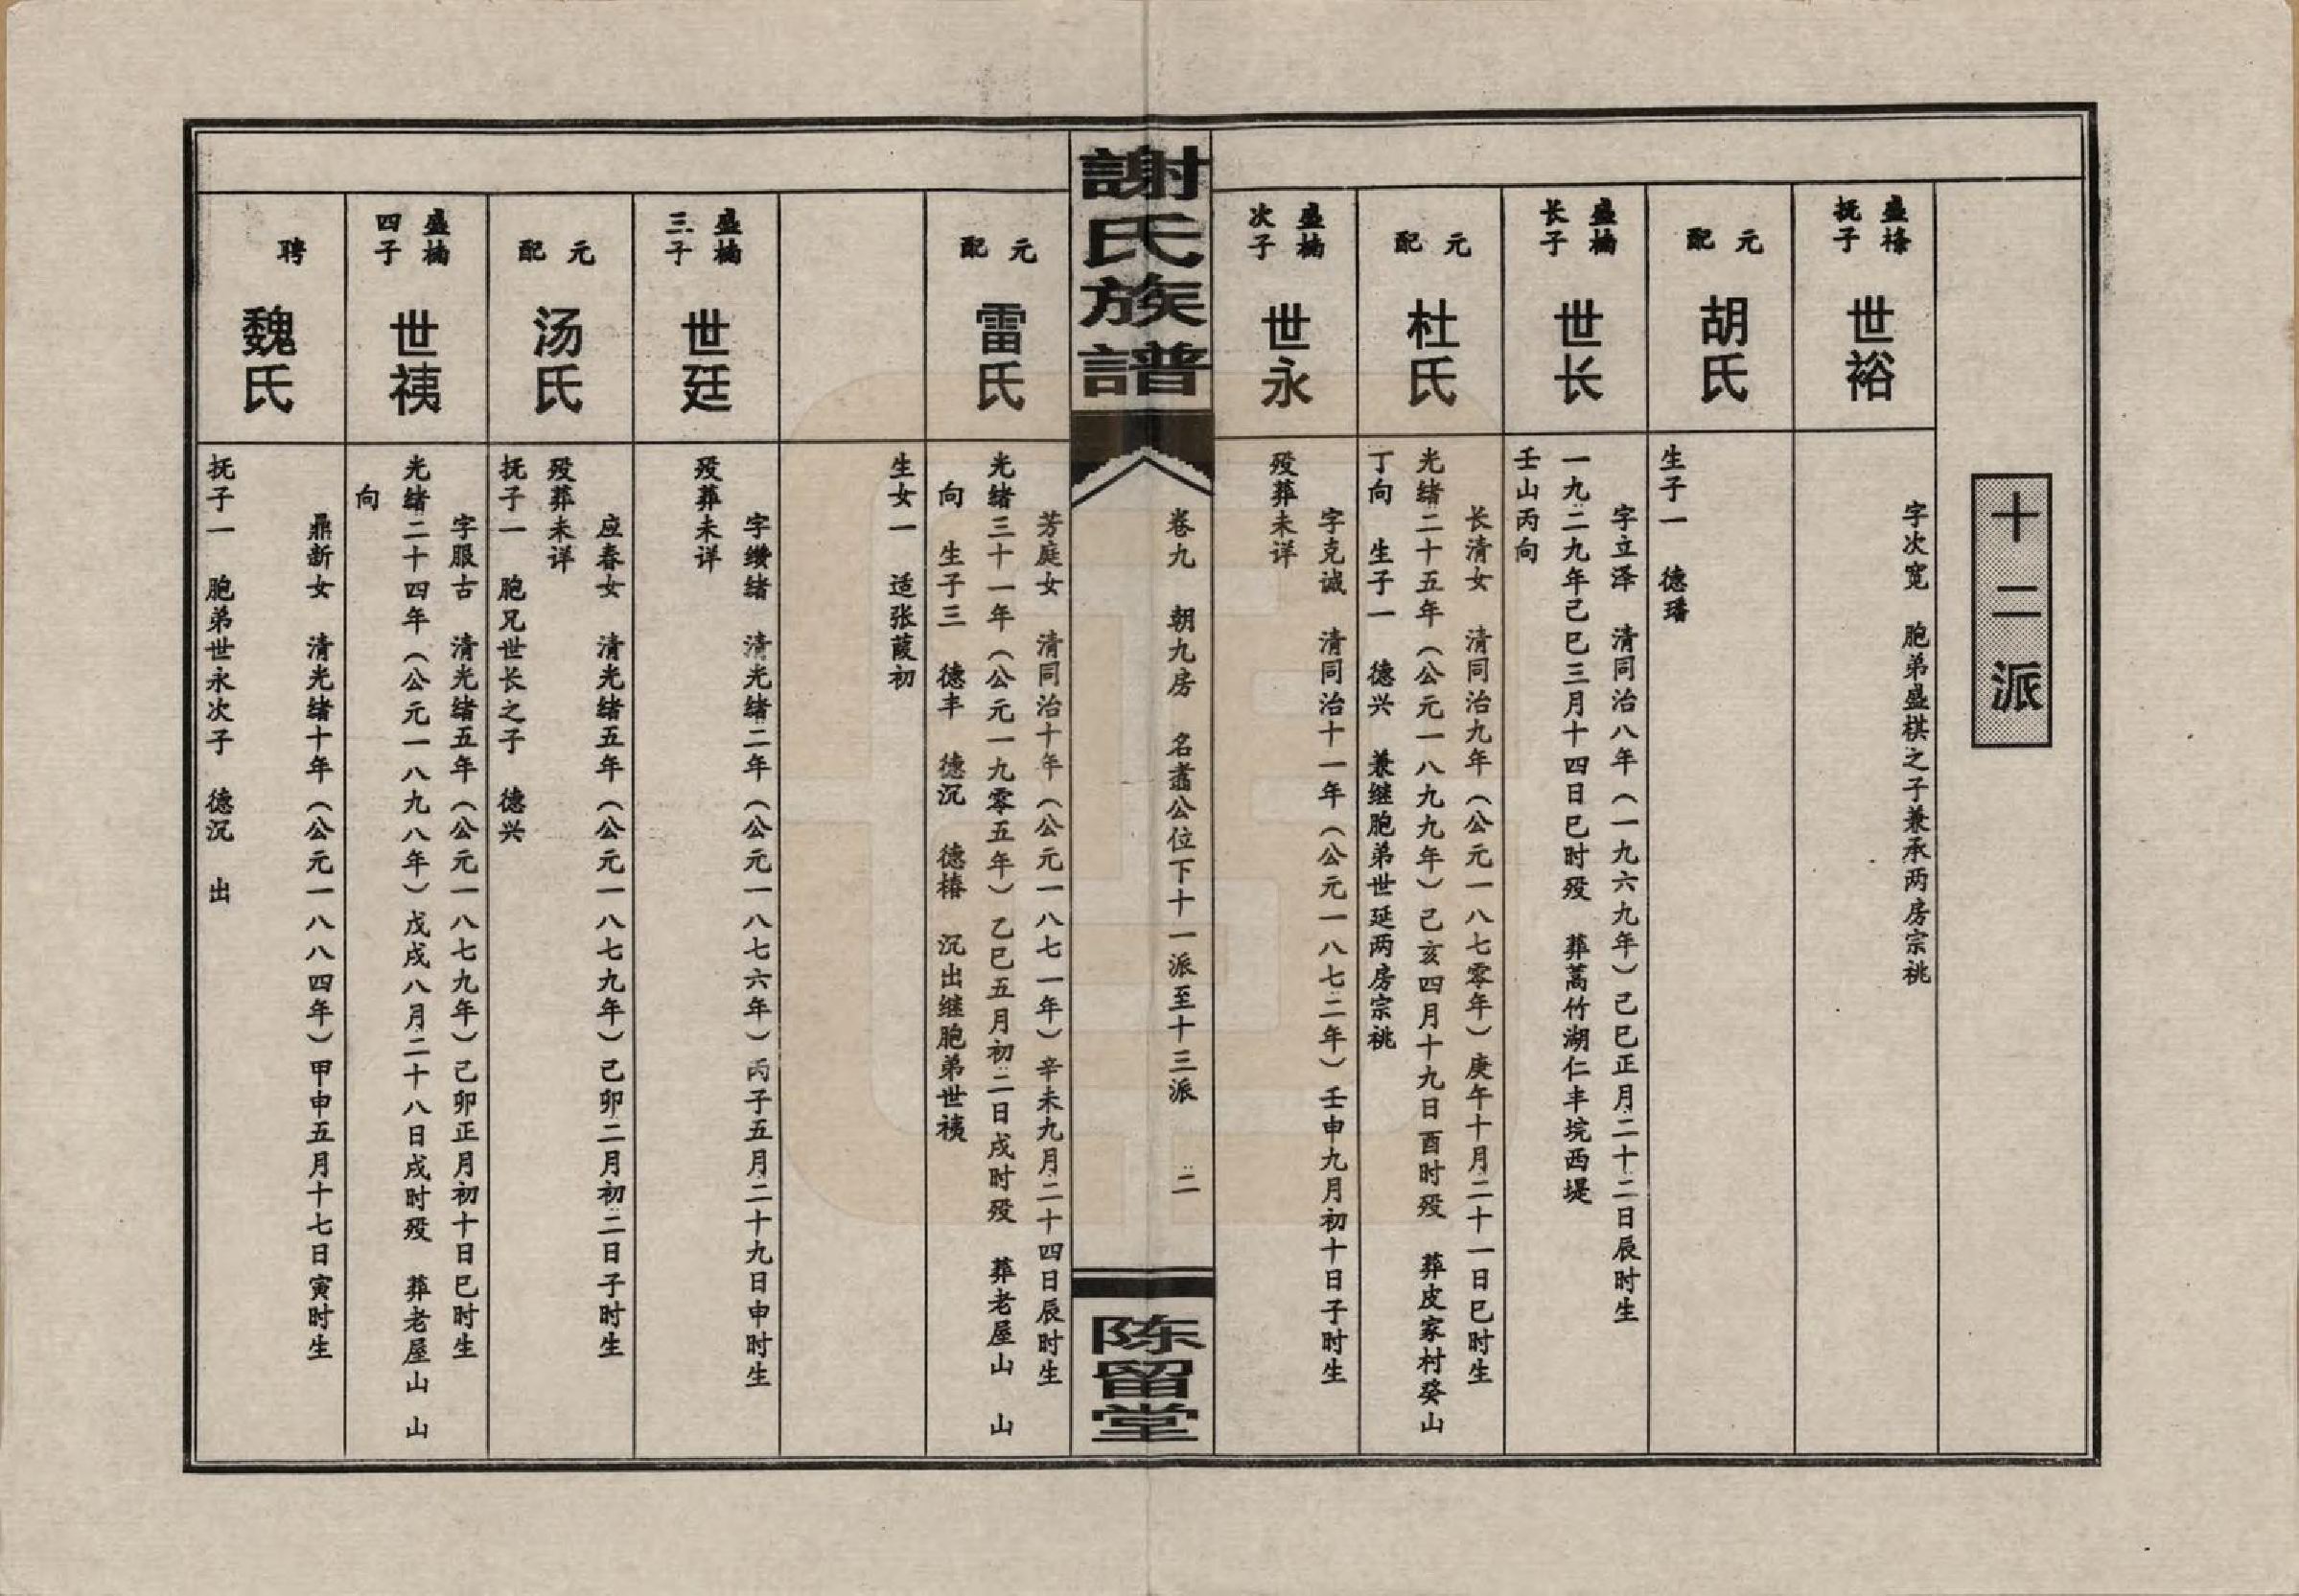 十二派
盛橼抚子
世裕
字次宽　胞弟盛棋之子兼承两房宗祧
元配
胡氏
生子一　德璠
盛楠长子
世长
字立泽　清同治八年（一九六九年）己巳正月二十二日辰时生
一九二九年己巳三月十四日巳时殁　葬蒿竹湖仁丰垸西堤
壬山丙向
元配
杜氏
长清女　清同治九年（公元一八七零年）庚午十月二十一日巳时生
光绪二十五年（公元一八九九年）己亥四月十九日酉时殁　葬皮家村癸山
丁向　生子一　德兴　兼继胞弟世延两房宗祧
盛楠次子
世永
字克诚　清同治十一年（公元一八七二年）壬申九月初十日子时生
殁葬未详
謝氏族譜
卷九　朝九房　名翥公位下十一派至十三派　二
陈留堂
元配
雷氏
芳庭女　清同治十年（公元一八七一年）辛未九月二十四日辰时生
光绪三十一年（公元一九零五年）乙巳五月初二日戌时殁　葬老屋山　山
向　生子三　德丰　德沉　德椿　沉出继胞弟世𧙕
生女一　适张葭初
盛楠三子
世廷
字缵绪　清光绪二年（公元一八七六年）丙子五月二十九日申时生
殁葬未详
元配
汤氏
应春女　清光绪五年（公元一八七九年）己卯二月初二日子时生
殁葬未详
抚子一　胞兄世长之子　德兴
盛楠四子
世𧙕
字服古　清光绪五年（公元一八七九年）己卯正月初十日巳时生
光绪二十四年（公元一八九八年）戊戌八月二十八日戌时殁　葬老屋山　山
向
聘
魏氏
鼎新女　清光绪十年（公元一八八四年）甲申五月十七日寅时生
抚子一　胞弟世永次子　德沉　出